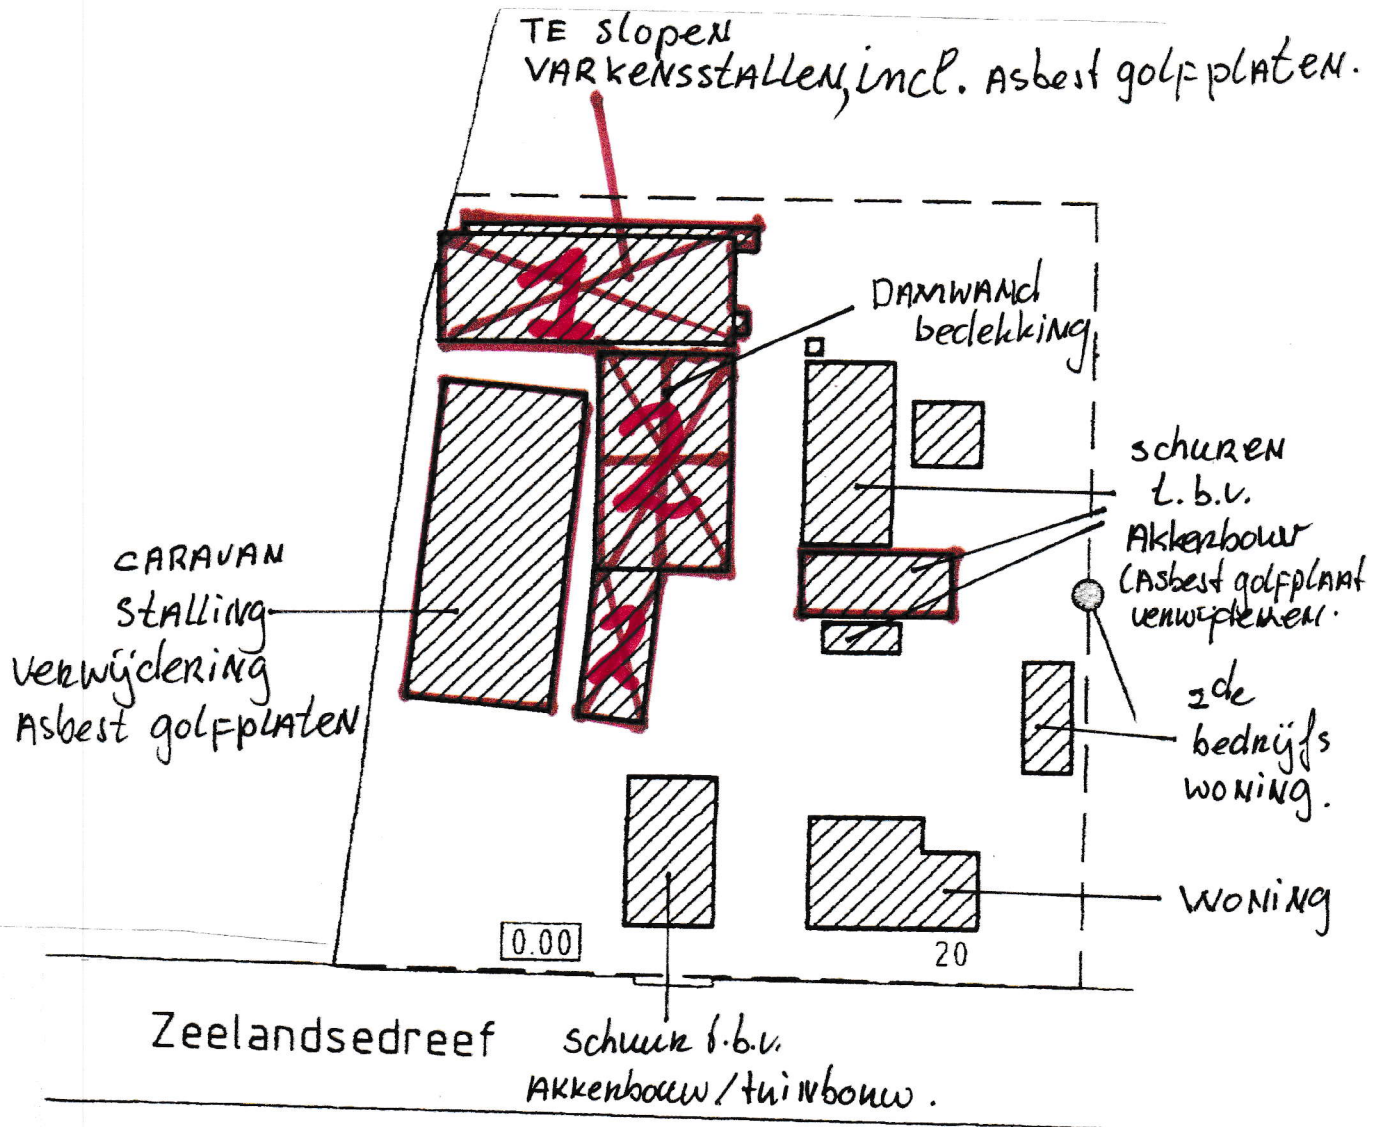 TE slopen
VARKENSSTALLEN, incl. Asbest golfplaten.
1
DAMWAND
bedekking
2
schuren
t.b.v.
Akkerbouw
(Asbest golfplaat
verwijderen.
CARAVAN
stalling
verwijdering
Asbest golfplaten
2de
bedrijfs
woning.
woning
0.00
20
Zeelandsedreef
schuur t.b.v.
Akkerbouw / tuinbouw.